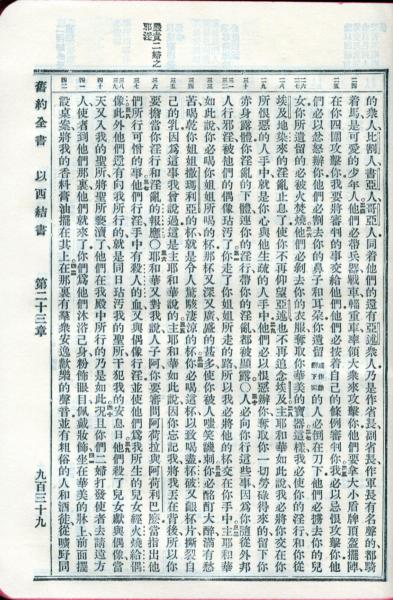 的衆人比割人書亞人哥亞人同着他們的還有亞述衆人乃是作省長副省長作軍長有名聲的都騎
着馬是可愛的少年人他們必帶兵器戰車輜重車率領大衆來攻擊你他們要拿大小盾牌頂盔擺陣
在你四圍攻擊你我要將審判的事交給他們他們必按着自己的條例審判你我必以忌恨攻擊你他
們必以忿怒辦你他們必割去你的鼻子和耳朶你遺留的人必倒在刀下他們必擄去你的兒
女你所遺留的必被火焚燒他們必剝去你的衣服奪取你華美的寶器這樣我必使你的淫行和你從
埃及地染來的淫亂止息了使你不再仰望亞述也不再追念埃及主耶和華如此說我必將你交在你
所恨惡的人手中就是你心與他生疏的人手中他們必以恨惡辦你奪取你一切勞碌得來的留下你
赤身露體你淫亂的下體連你的淫行帶你的淫亂都被顯露人必向你行這些事因爲你隨從外邦
人行邪淫被他們的偶像玷污了你走了你姐姐所走的路所以我必將他的杯交在你手中主耶和華
如此說你必喝你姐姐所喝的杯那杯又深又廣盛的甚多使你被人嗤笑譏刺你必酩酊大醉滿有愁
苦喝乾你姐姐撒瑪利亞的杯就是令人驚駭淒凉的杯你必喝這杯以致喝盡杯破又齦杯片撕裂自
己的乳因爲這事我曾說過這是主耶和華說的主耶和華如此說因你忘記我將我丟在背後所以你
嚴責二婦之邪淫
要擔當你淫行和淫亂的報應○耶和華又對我說人子阿你要審問阿荷拉與阿荷利巴麽當指出他
們所行可憎的事他們行淫手中有殺人的血又與偶像行淫並使他們爲我所生的兒女經火燒給偶
像此外他們還有向我所行的就是同日玷污我的聖所干犯我的安息日他們殺了兒女獻與偶像當
天又入我的聖所將聖所褻瀆了他們在我殿中所行的乃是如此況且你們二婦打發使者去請遠方
人使者到他們那裏他們就來了你們爲他們沐浴己身粉飾眼目佩戴妝飾坐在華美的牀上前面擺
設桌案將我的香料膏油擺在其上在那裏有羣衆安逸歡樂的聲音並有粗俗的人和酒徒從曠野同
舊約全書 以西結書 第二十三章 九百三十九